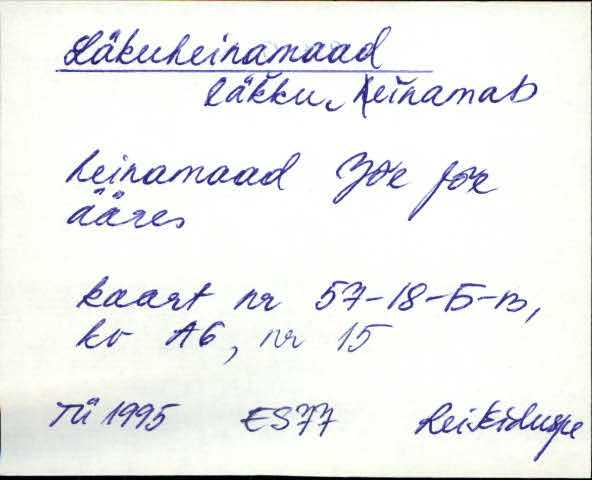 Läkuheinamaad
läkku, heinamaᴅ
heinamaad jõe
ääres
kaart nr 57-18-Б-в,
kv A6, nr 15
TÜ 1995 ES77